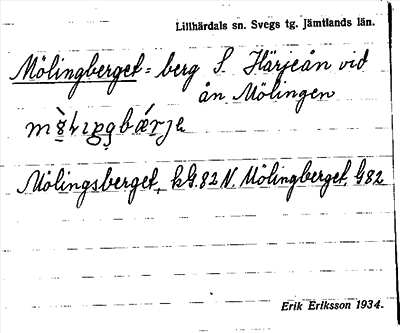 Lillhärdals sn. Svegs tg. Jämtlands län.
Mölingberget = berg S Härjeån vid
ån Mölingen
Mölingsberget, kG.82 N. Mölingberget, G82
Erik Eriksson 1934.